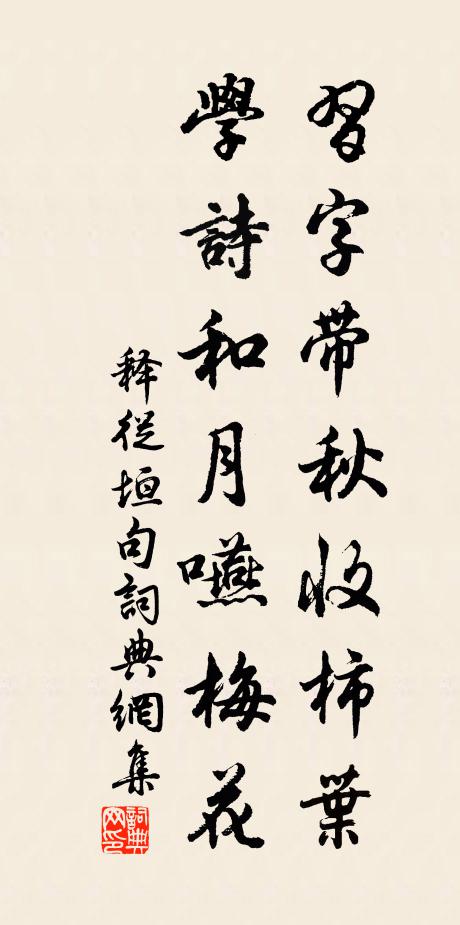 習字帶秋收柿葉
學詩和月嚥梅花
释從垣句詞典網集
詞典網印